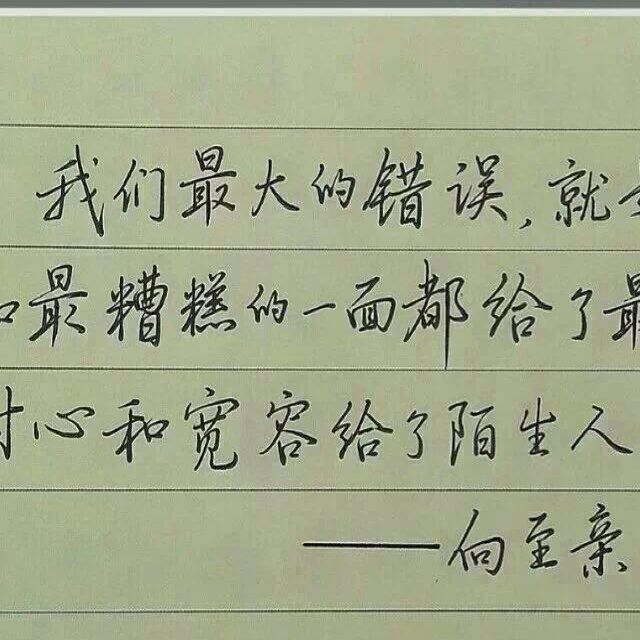 我们最大的错误,就
和最糟糕的一面都给了最
耐心和宽容给了陌生人
——向至亲